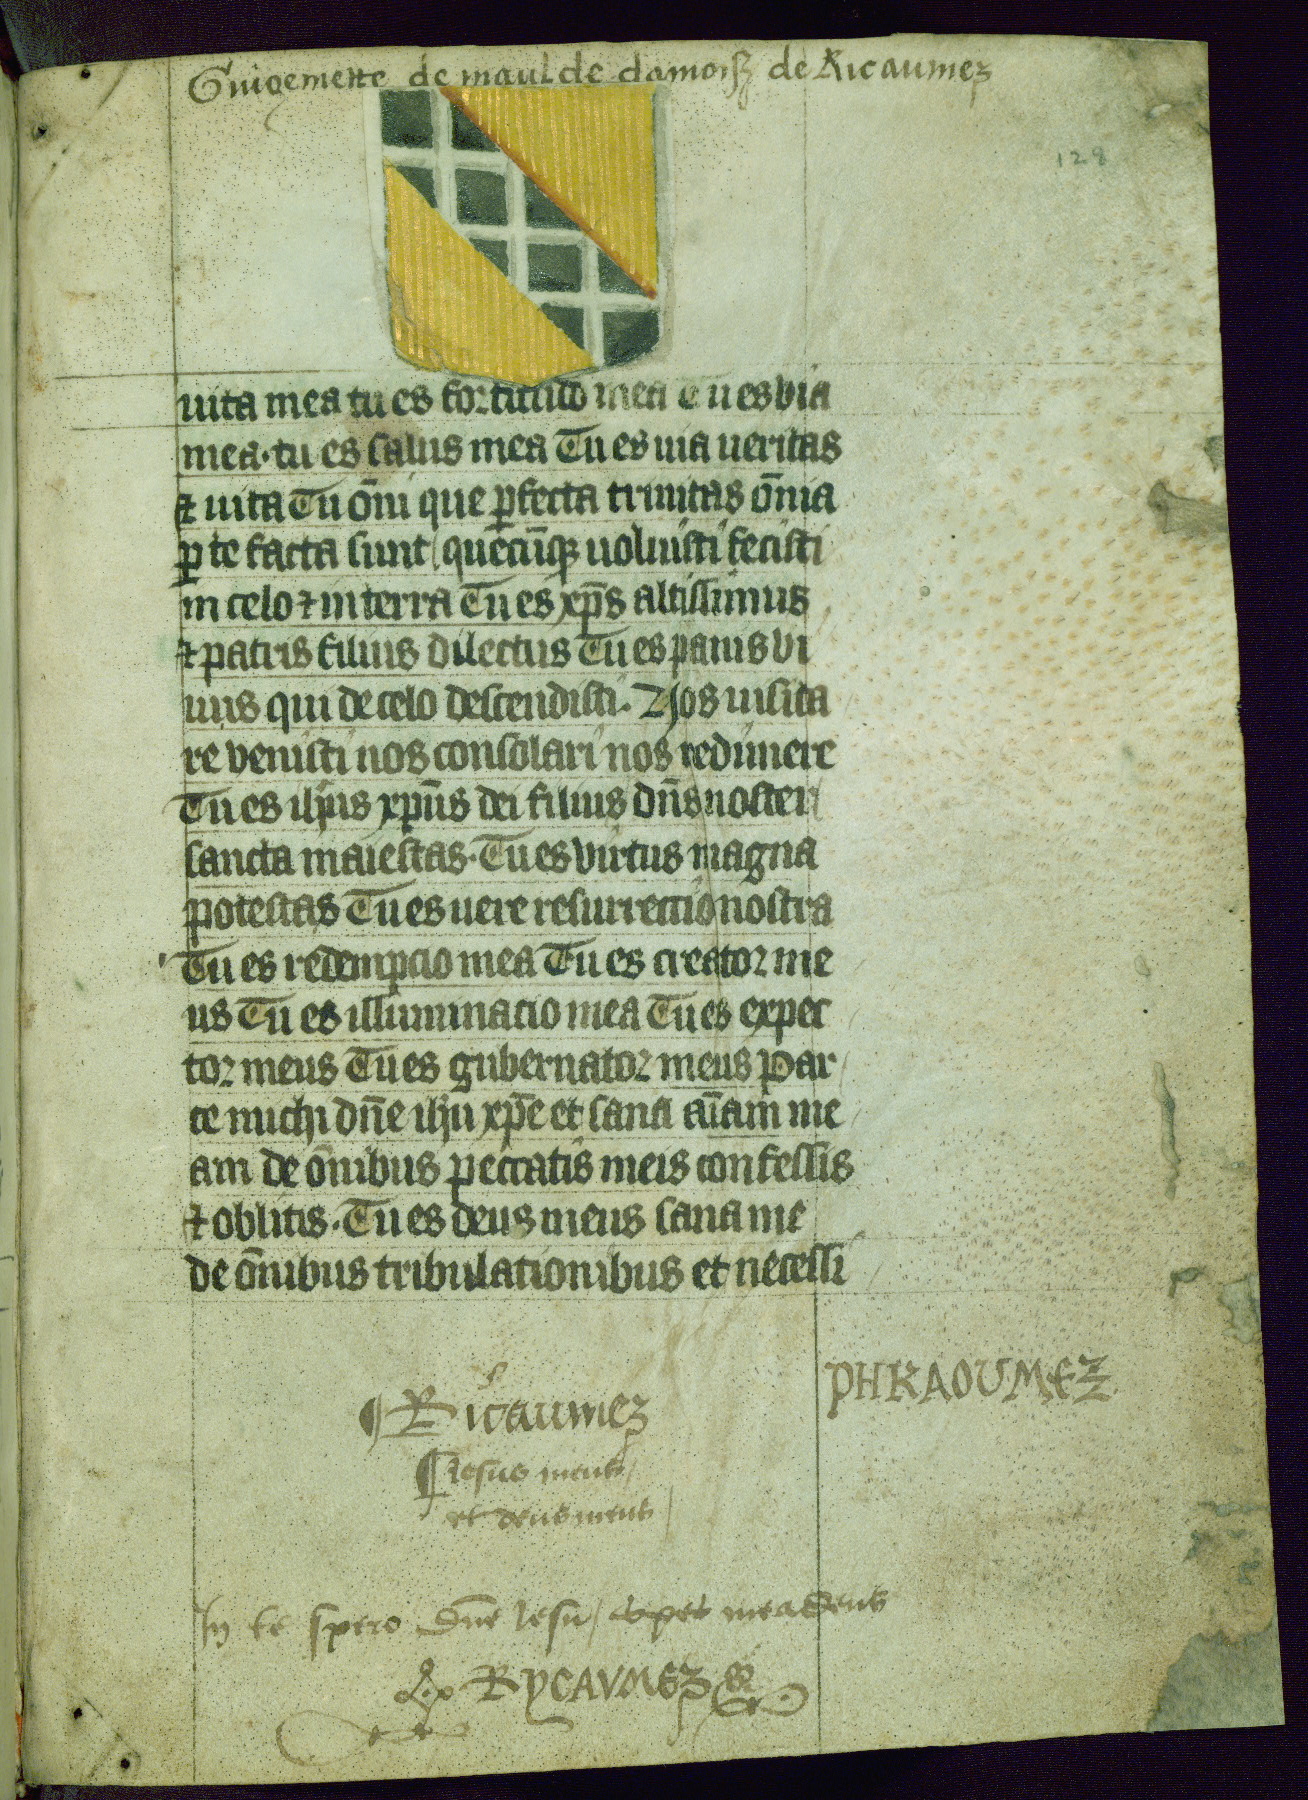 Guigemette de maulde damoisz de Ricaumez
128
uita mea tu es fortitudo mea Tu es via
mea· tu es salus mea Tu es uia ueritas
⁊ uita Tu om̄i que ꝑfecta trinitas om̄ia
ꝑ te facta sunt quecūqꝫ uoluisti fecisti
in celo ⁊ in terra Tu es xp̄s altissimus
⁊ patris filius dilectus Tu es panis vi
uus qui de celo descendisti. Nos uisita
re venisti nos consolari nos redimere
Tu es ihjus xpūs dei filius dn̄s noster
sancta maiestas· Tu es virtus magna
potestas Tu es uere resurrectio nostra
Tu es redempcio mea Tu es creator me
us Tu es illuminacio mea Tu es expec
tor meus Tu es gubernator meus par
ce michi dn̄e ihu xp̄e et sana aīam me
am de om̄ibus peccatis meis confessis
⁊ oblitis· Tu es deus meus sana me
de om̄ibus tribulationibus et necessi
PHKAOUMEZ
¶ Ricaumez
¶ iesus meus/
et deus meus/
In te spero dn̄e iesu/ spes mea deus
RYCAVMEZ